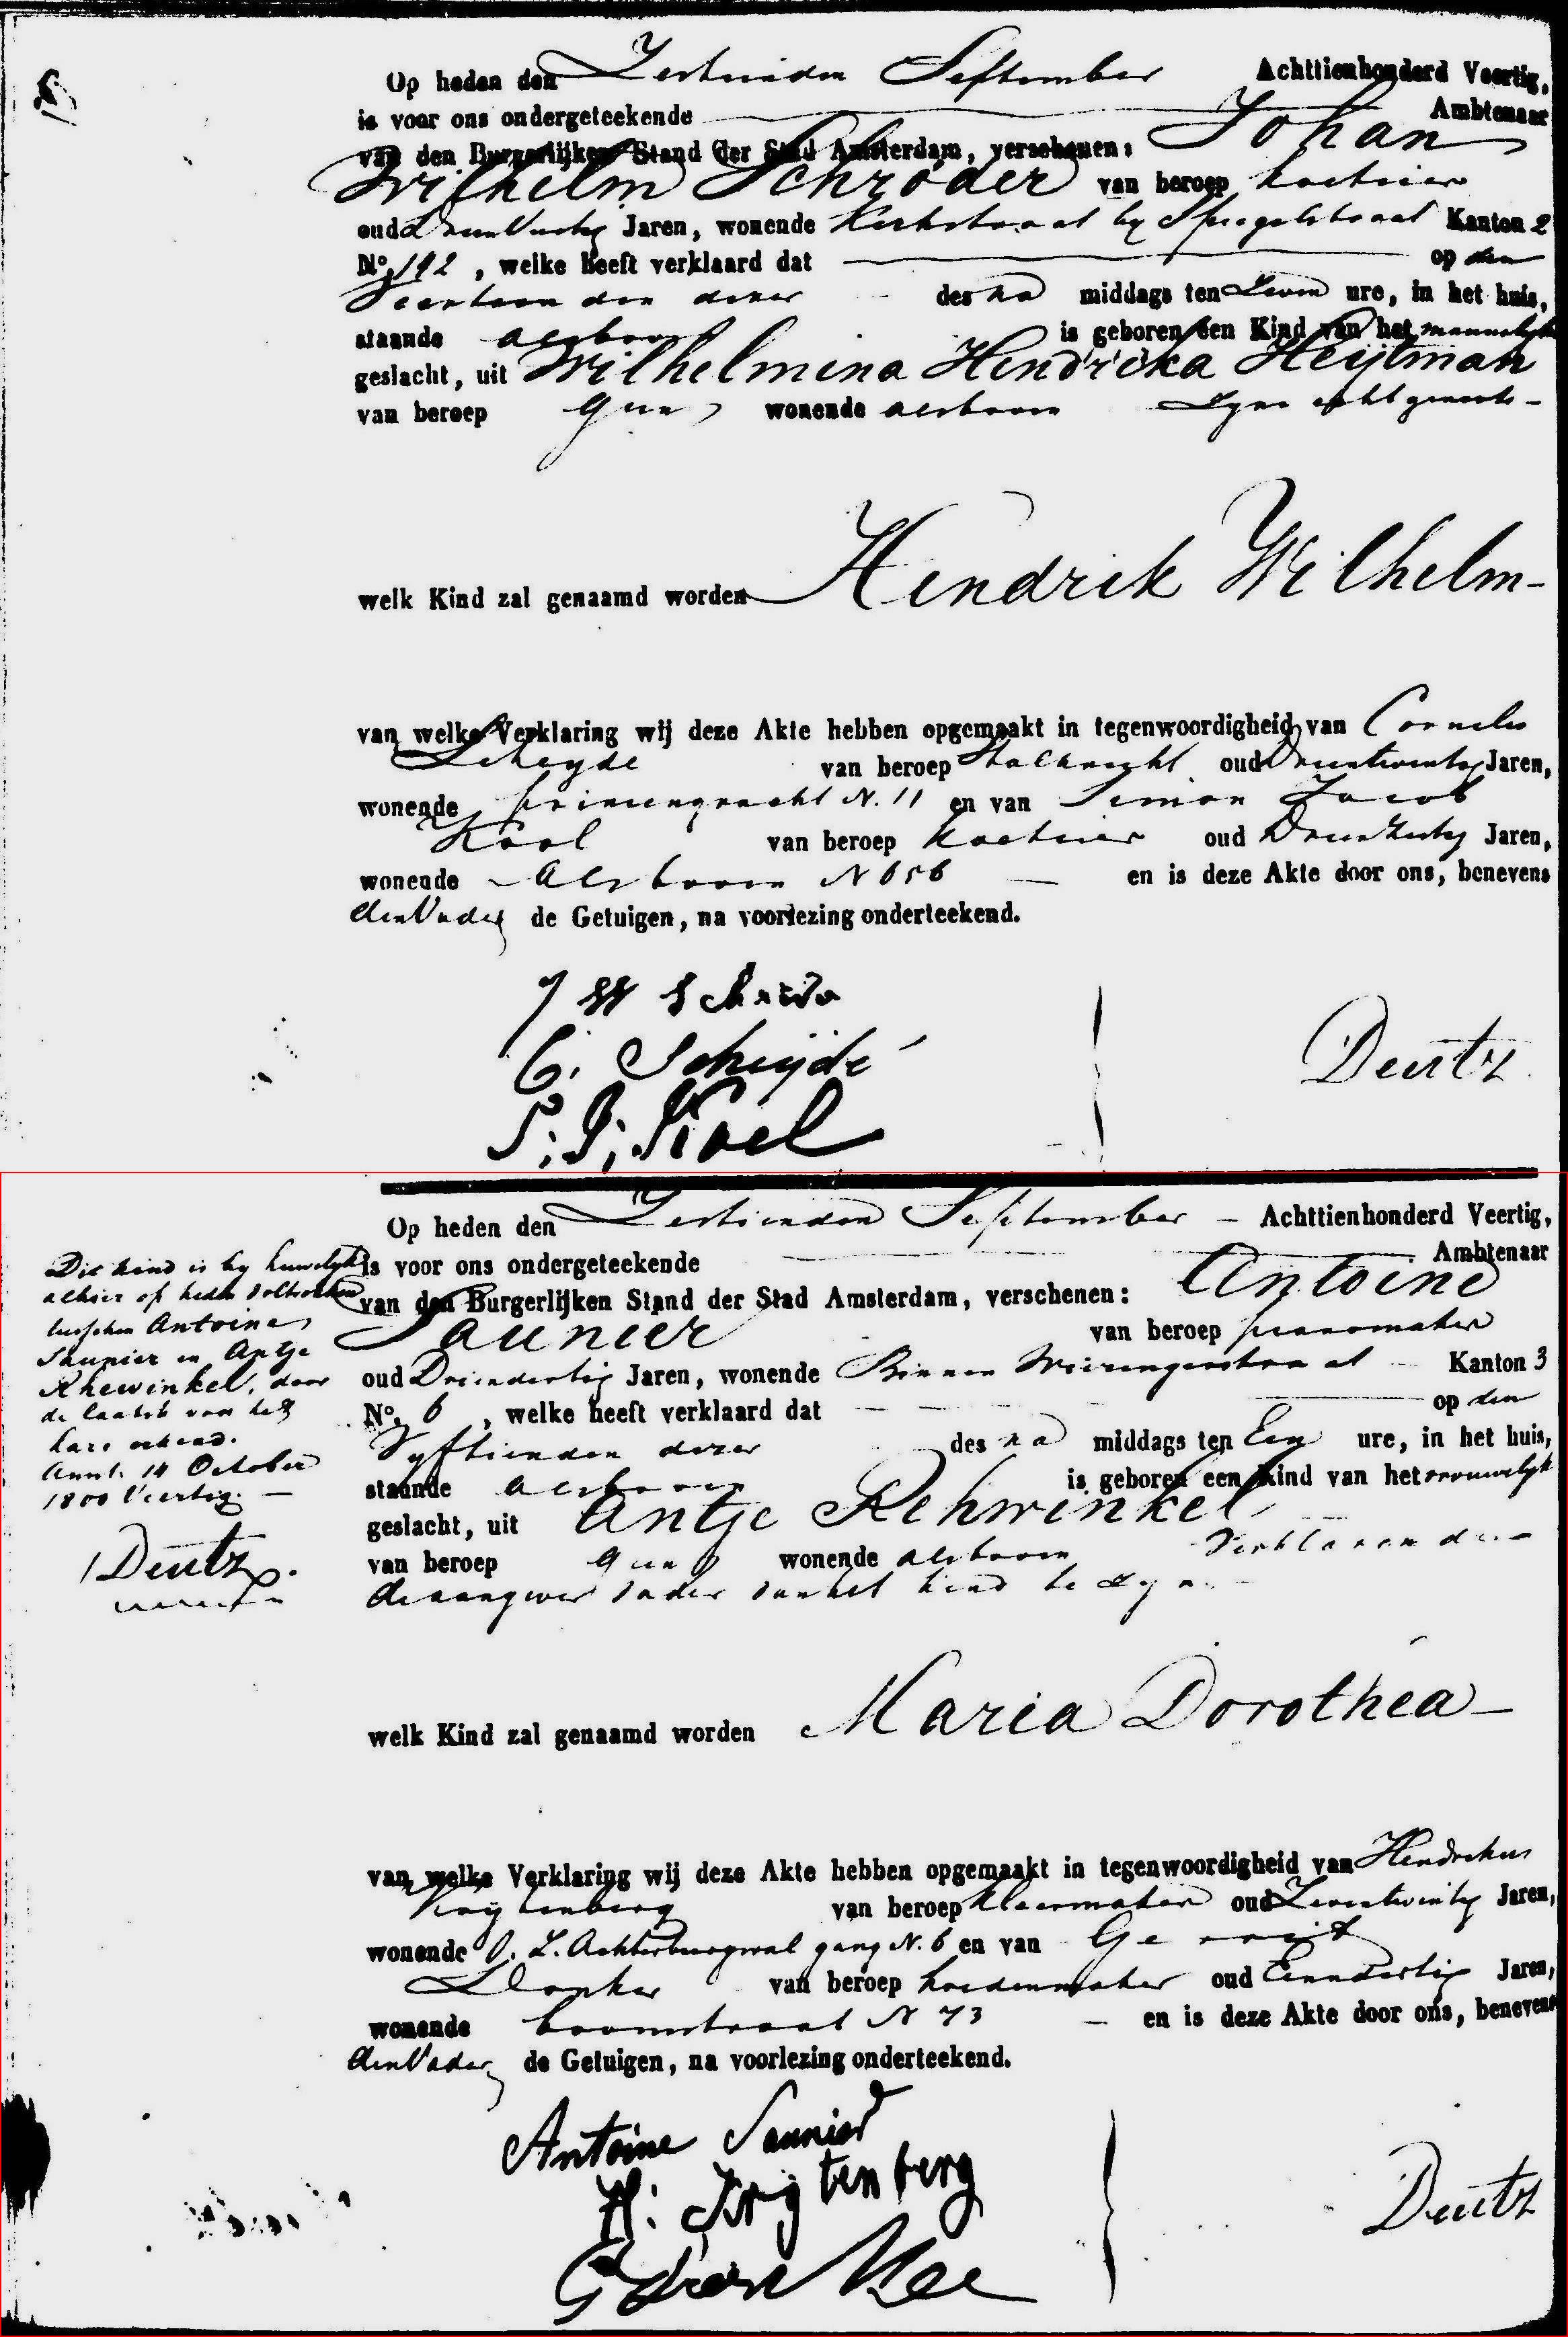 Op heden den Zestienden September Achttienhonderd Veertig,
is voor ons ondergeteekende Ambtenaar
van den Burgerlijken Stand der Stad Amsterdam, verschenen: Johan
Wilhelm Schröder van beroep koetsier
oud Jaren, wonende Kerkstraat by Spiegelstraat Kanton 2
No. 192, welke heeft verklaard dat op den
Veertienden dezer des na middags ten Zeven ure, in het huis,
staande aldaar is geboren een Kind van het mannelijk
geslacht, uit Wilhelmina Hendrika Heijtman
van beroep geen wonende aldaar Zyne echtgenoote -
welk Kind zal genaamd worden Hendrik Wilhelm -
van welke Verklaring wij deze Akte hebben opgemaakt in tegenwoordigheid van Cornelis
Scheyde van beroep Stalknecht oud Drieentwintig Jaren,
wonende prinsengracht N. 11 en van Simon Jacob
Kool van beroep koetsier oud Jaren,
wonende aldaar N 656 en is deze Akte door ons, benevens
den Vader de Getuigen, na voorlezing onderteekend.
J W Schröder
C. Scheijde
S. J. Kool
Deutz
Op heden den Zestienden September - Achttienhonderd Veertig,
is voor ons ondergeteekende Ambtenaar
van den Burgerlijken Stand der Stad Amsterdam, verschenen: Antoine
Saunier van beroep pianomaker
oud Drieendertig Jaren, wonende Binnen Wieringerstraat Kanton 3
No. 6, welke heeft verklaard dat op den
Vyftienden dezer des na middags ten Een ure, in het huis,
staande aldaar is geboren een Kind van het vrouwelyk
geslacht, uit Antje Rehwinkel
van beroep geen wonende aldaar Verklarende
de aangever Vader van het kind te zyn. -
welk Kind zal genaamd worden Maria Dorothea -
van welke Verklaring wij deze Akte hebben opgemaakt in tegenwoordigheid van Hendrikus
Krijtenberg van beroep kleermaker oud Jaren,
wonende O. Z. Achterburgwal gang N. 6 en van Gerrit
Donker van beroep hoedenmaker oud Eenendertig Jaren,
wonende boomstraat N 73 - en is deze Akte door ons, benevens
den Vader de Getuigen, na voorlezing onderteekend.
Antoine Saunier
H. Krijtenberg
G Donker
Deutz
Dit kind is by huwelyk
alhier op heden voltrokken
tusschen Antoine
Saunier en Antje
Rhewinkel, door
de laatste voor het
hare erkend.
Amst. 14 October
1800 Veertig. -
Deutz.